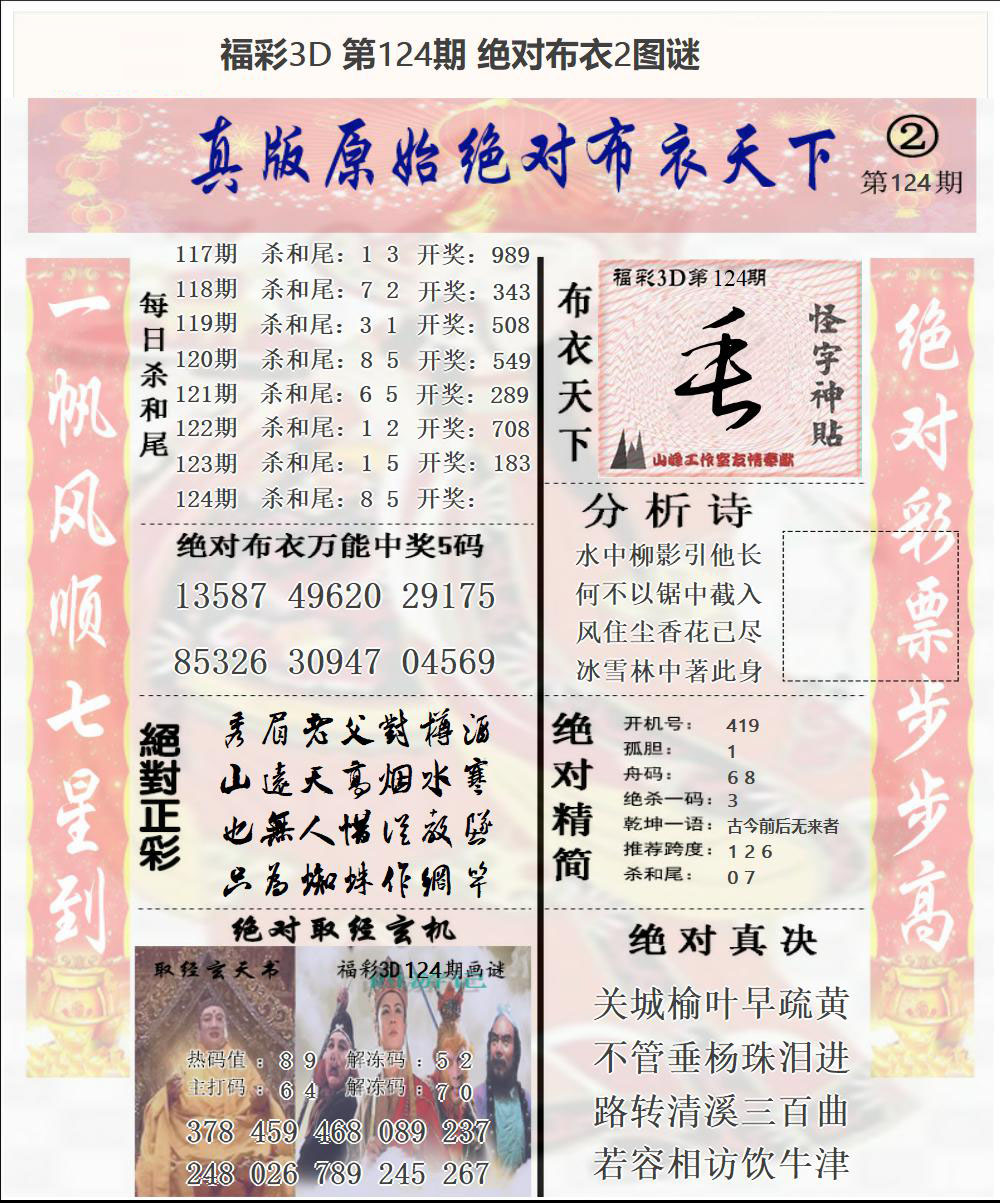 福彩3D 第124期 绝对布衣2图谜
真版原始绝对布衣天下
②
第124期
一帆风顺七星到
每日杀和尾
117期 杀和尾：1 3 开奖：989
118期 杀和尾：7 2 开奖：343
119期 杀和尾：3 1 开奖：508
120期 杀和尾：8 5 开奖：549
121期 杀和尾：6 5 开奖：289
122期 杀和尾：1 2 开奖：708
123期 杀和尾：1 5 开奖：183
124期 杀和尾：8 5 开奖：
绝对布衣万能中奖5码
13587 49620 29175
85326 30947 04569
絕對正彩
秀眉老父對樽酒
山遠天高烟水寒
也無人惜從教墜
只為蜘蛛作網竿
绝对取经玄机
取经玄天书
福彩3D124期画谜
热码值：8 9 解冻码：5 2
主打码：6 4 解冻码：7 0
378 459 468 089 237
248 026 789 245 267
布衣天下
福彩3D第124期
怪字神貼
山峰工作室友情奉献
分析诗
水中柳影引他长
何不以锯中截入
风住尘香花已尽
冰雪林中著此身
绝对精简
开机号：419
孤胆：1
舟码：6 8
绝杀一码：3
乾坤一语：古今前后无来者
推荐跨度：1 2 6
杀和尾：0 7
绝对真决
关城榆叶早疏黄
不管垂杨珠泪进
路转清溪三百曲
若容相访饮牛津
绝对彩票步步高